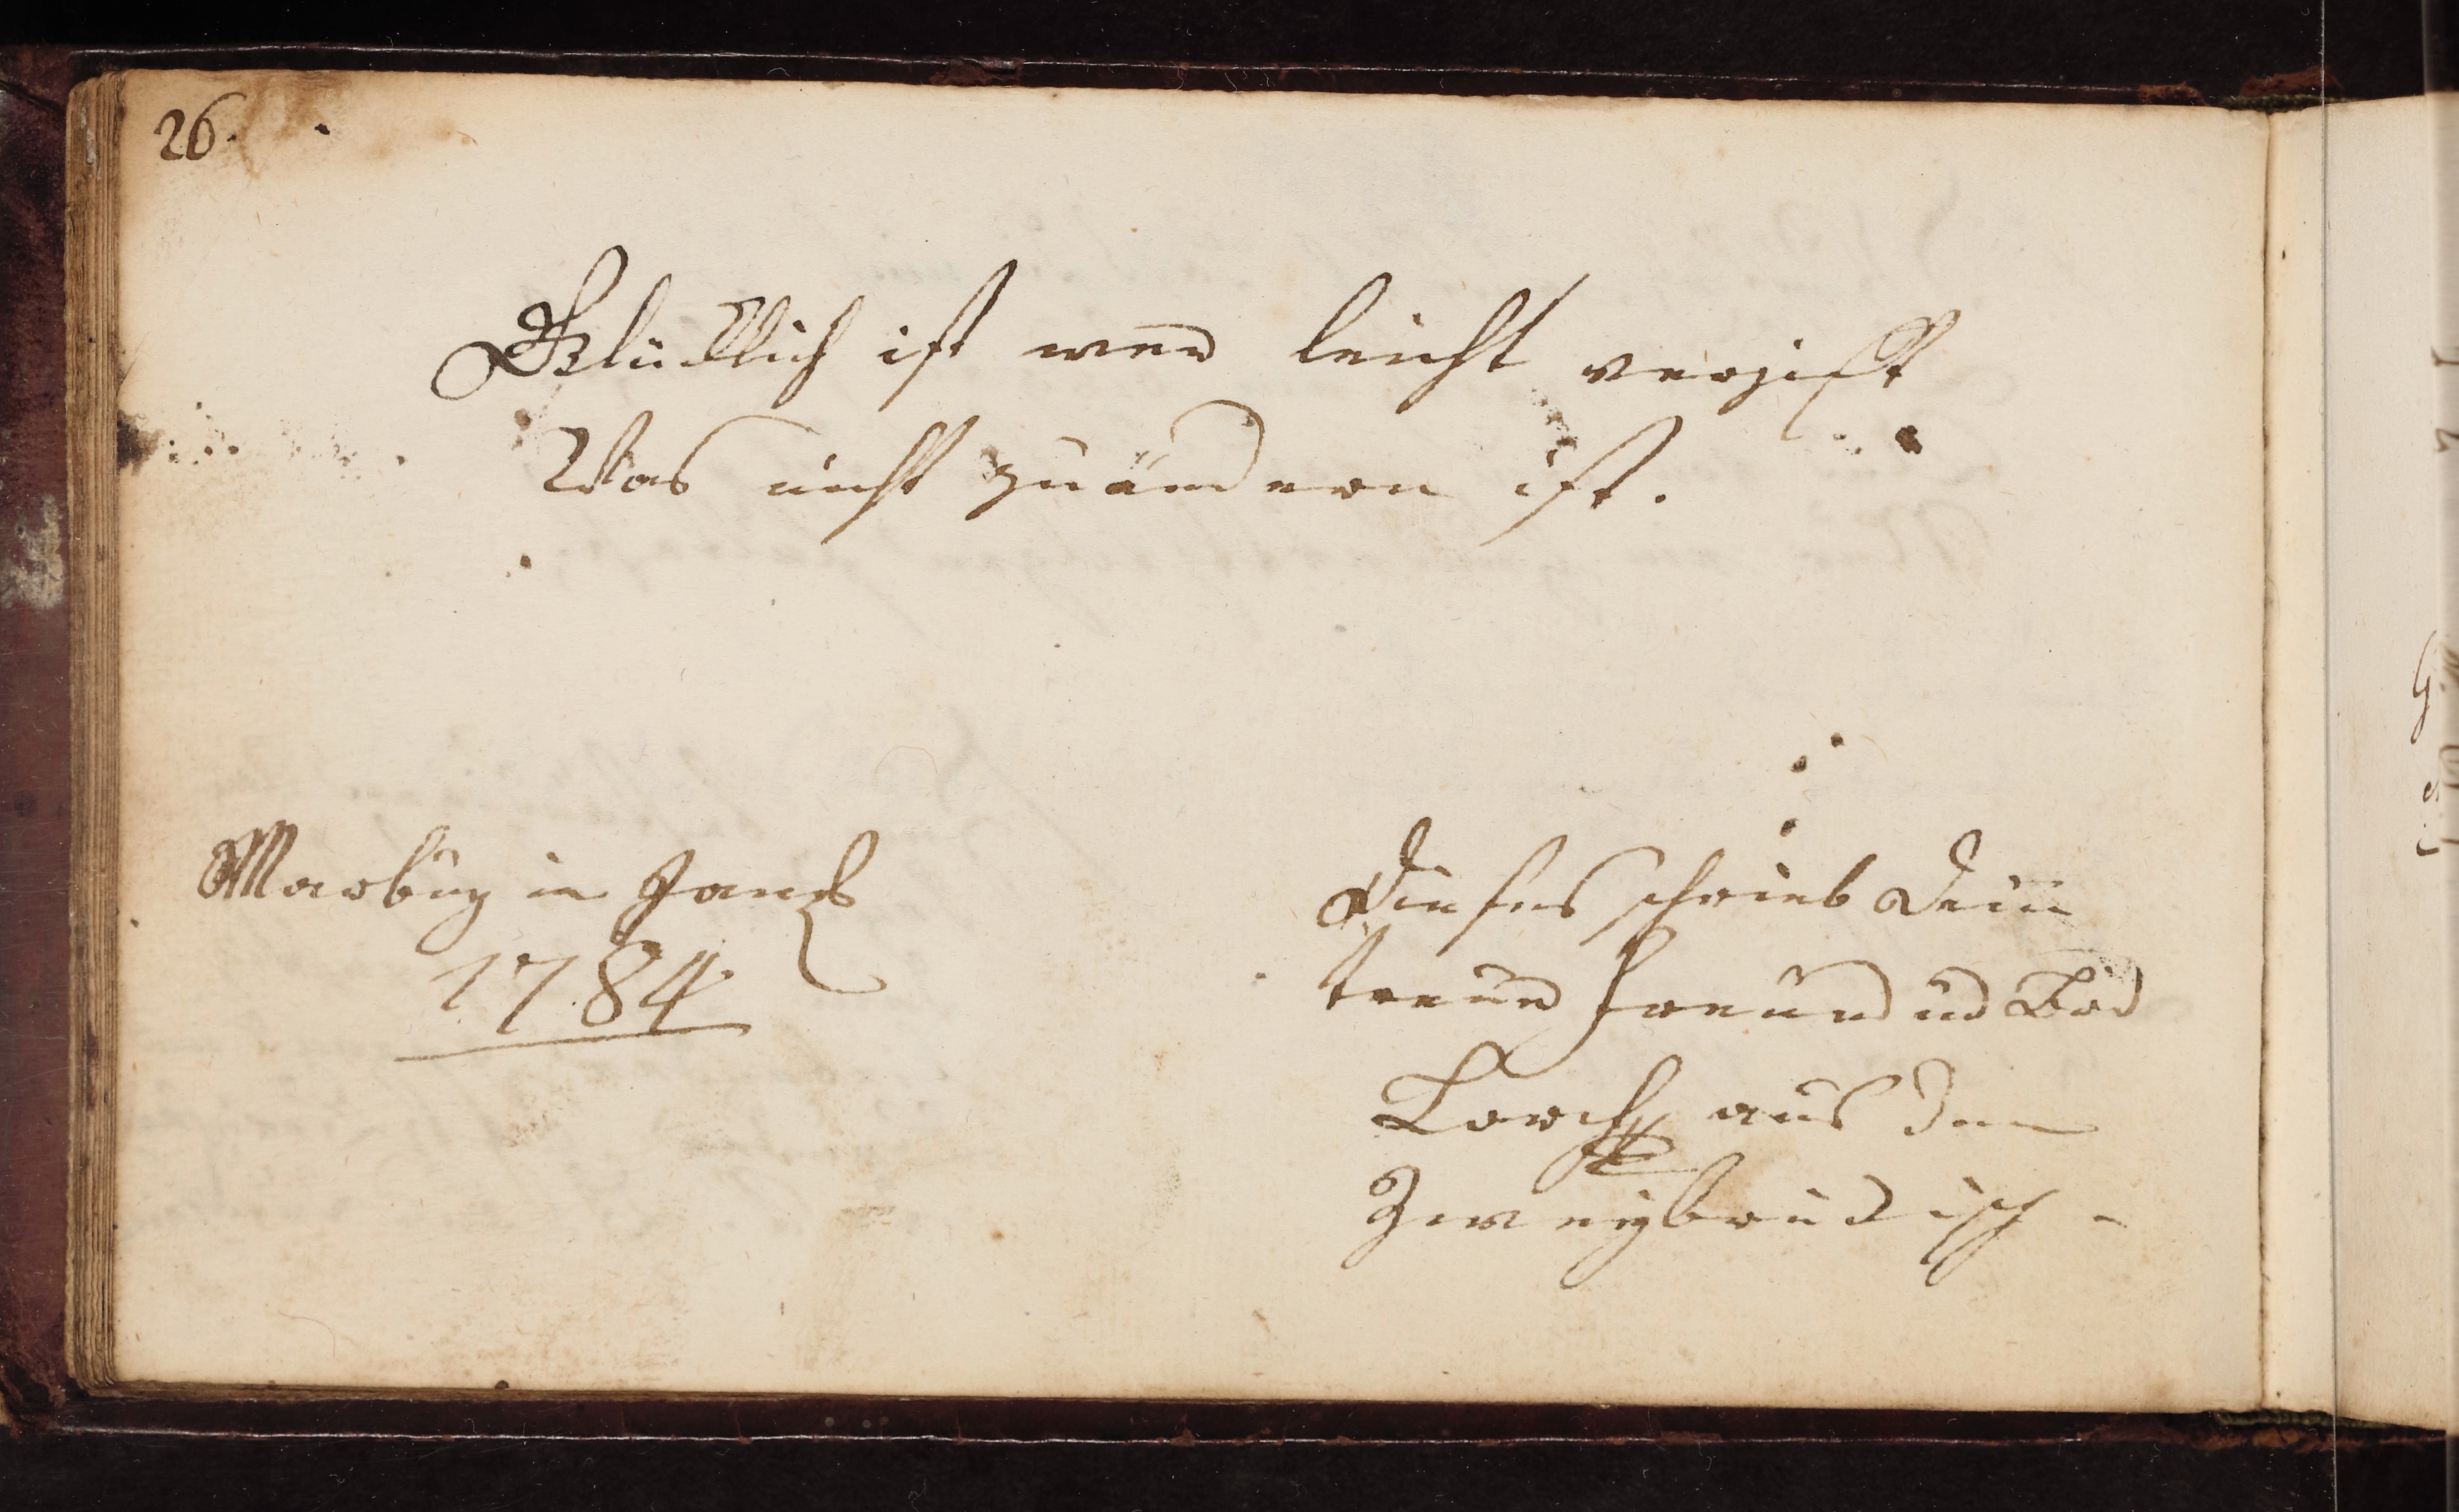 26.
Glücklich ist wer leicht vergist
Was nicht zuändern ist.
Marburg in
1784
Dieses schrieb Dein
treuer Freund ud Brd
Lorch aus dem
Zweybrückisch